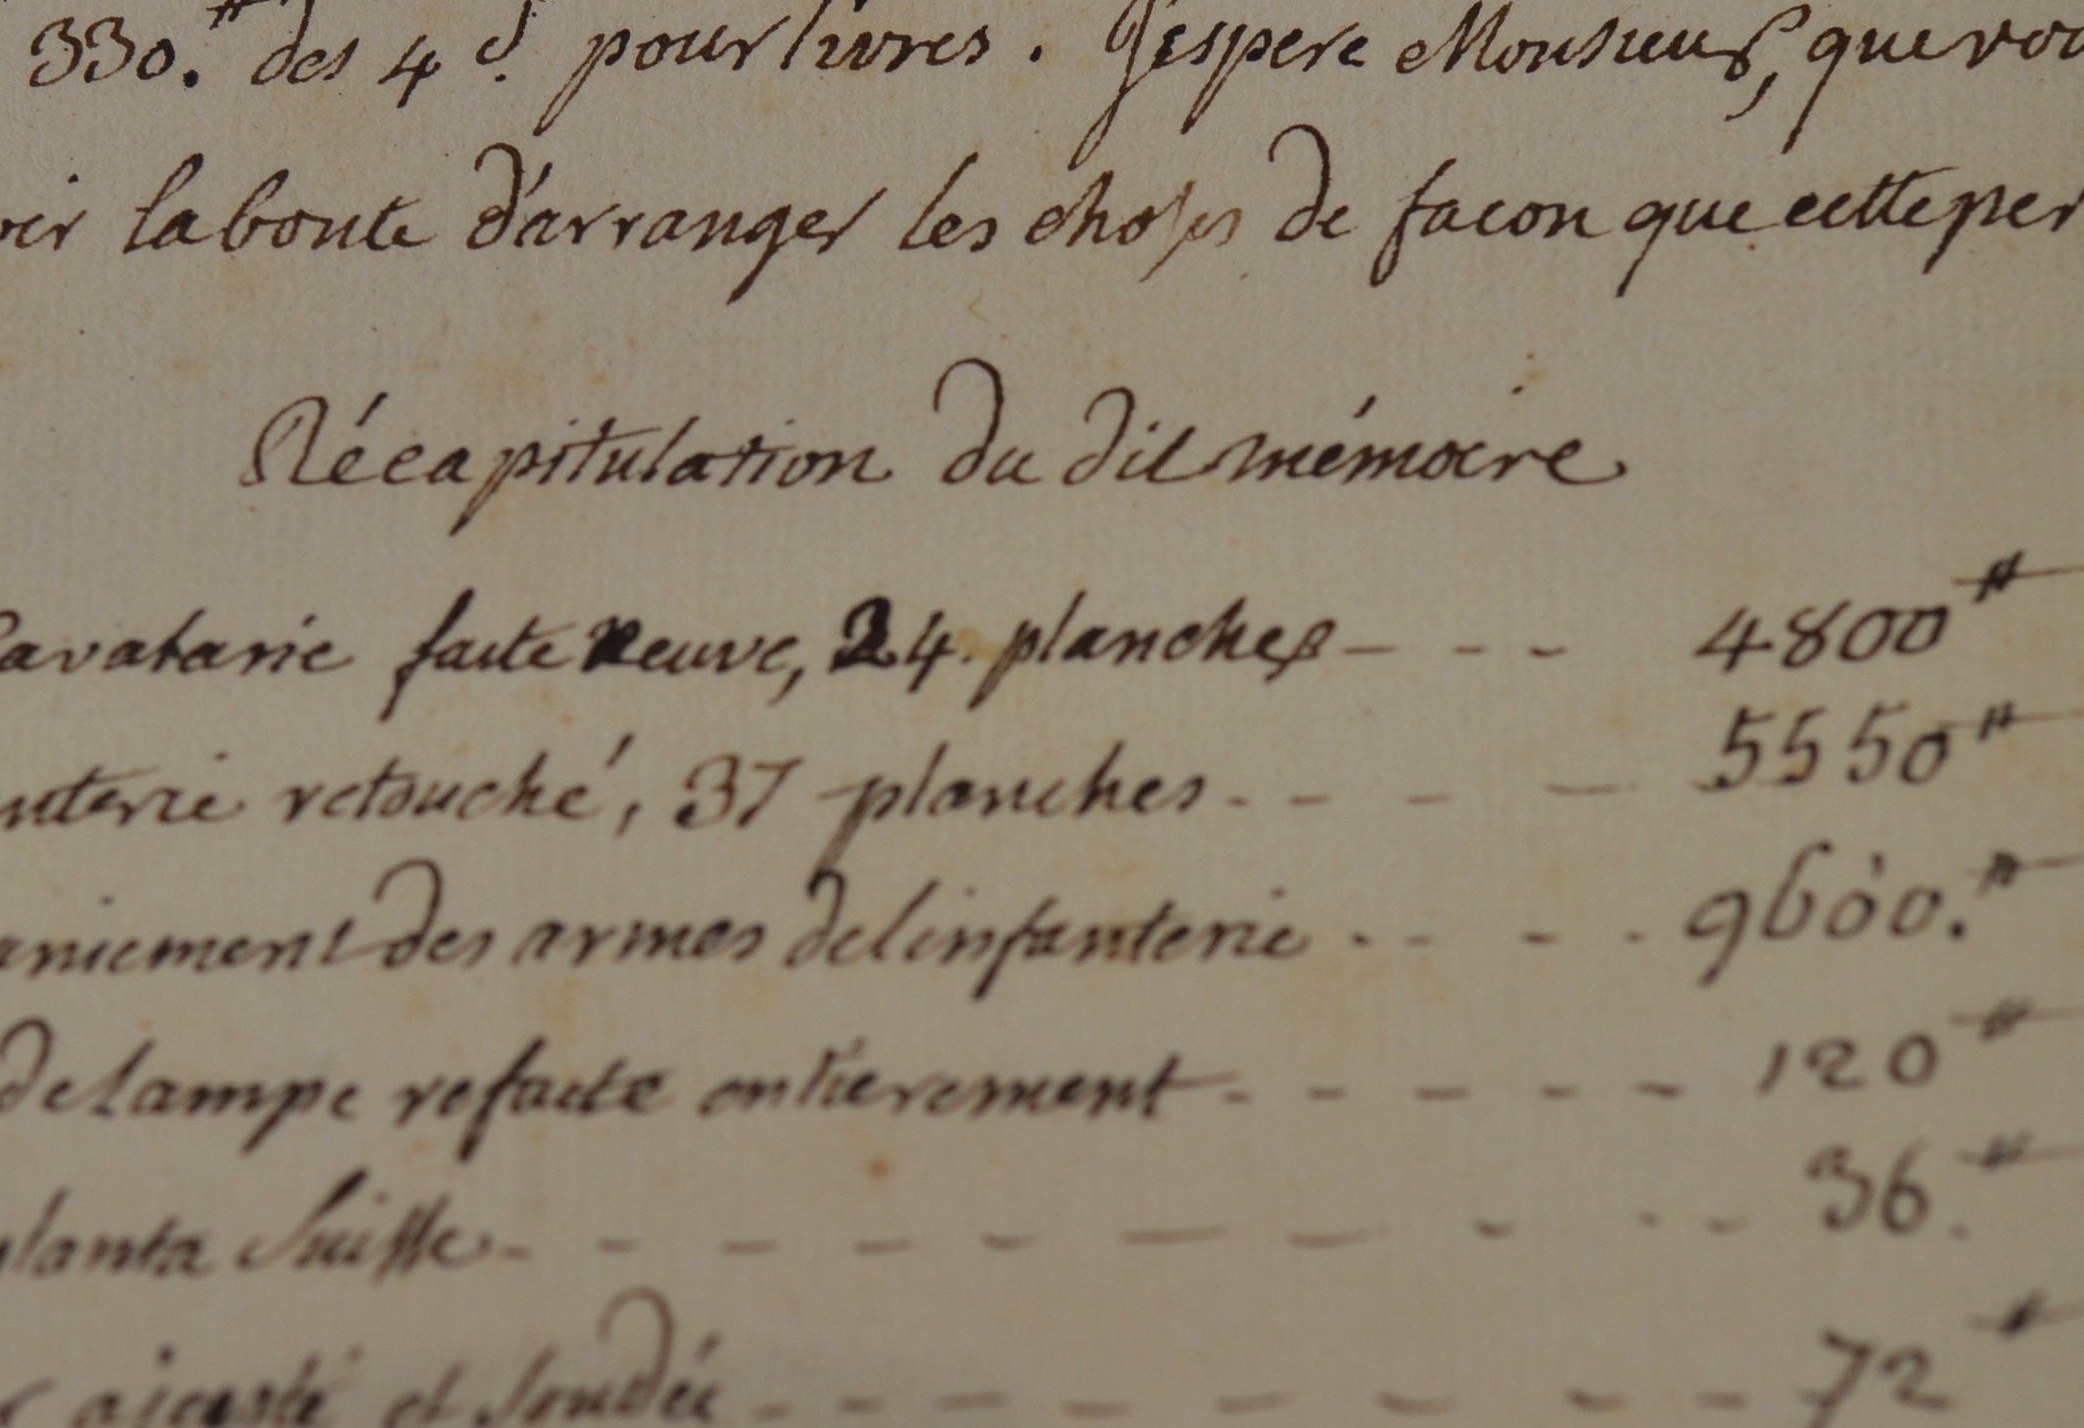 330.# des 4 d. pour livres. J'espere Monsieur, que vou
oir la bonte d'arranger les choses de facon que cette per
Récapitulation du dit mémoire
Cavalarie faite neuve, 24. planches - - - 4800#
nterie retouché, 37 planches - - - - 5550#
aniement des armes de linfanterie - - - - 9600.#
de lampe refaite entierement - - - - - 120#
planta Suisse - - - - - - - - - - 36.#
ajusté et soudée - - - - - - - - 72#